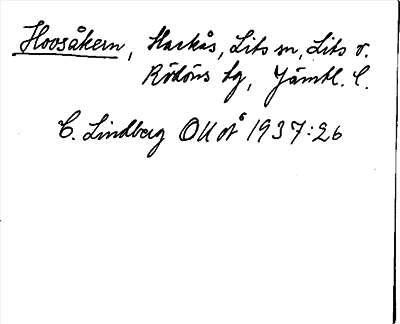 Hoosåkern, Harkås, Lits sn, Lits o.
Rödöns tg, Jämtl. l.
C. Lindberg OUoÅ 1937:26